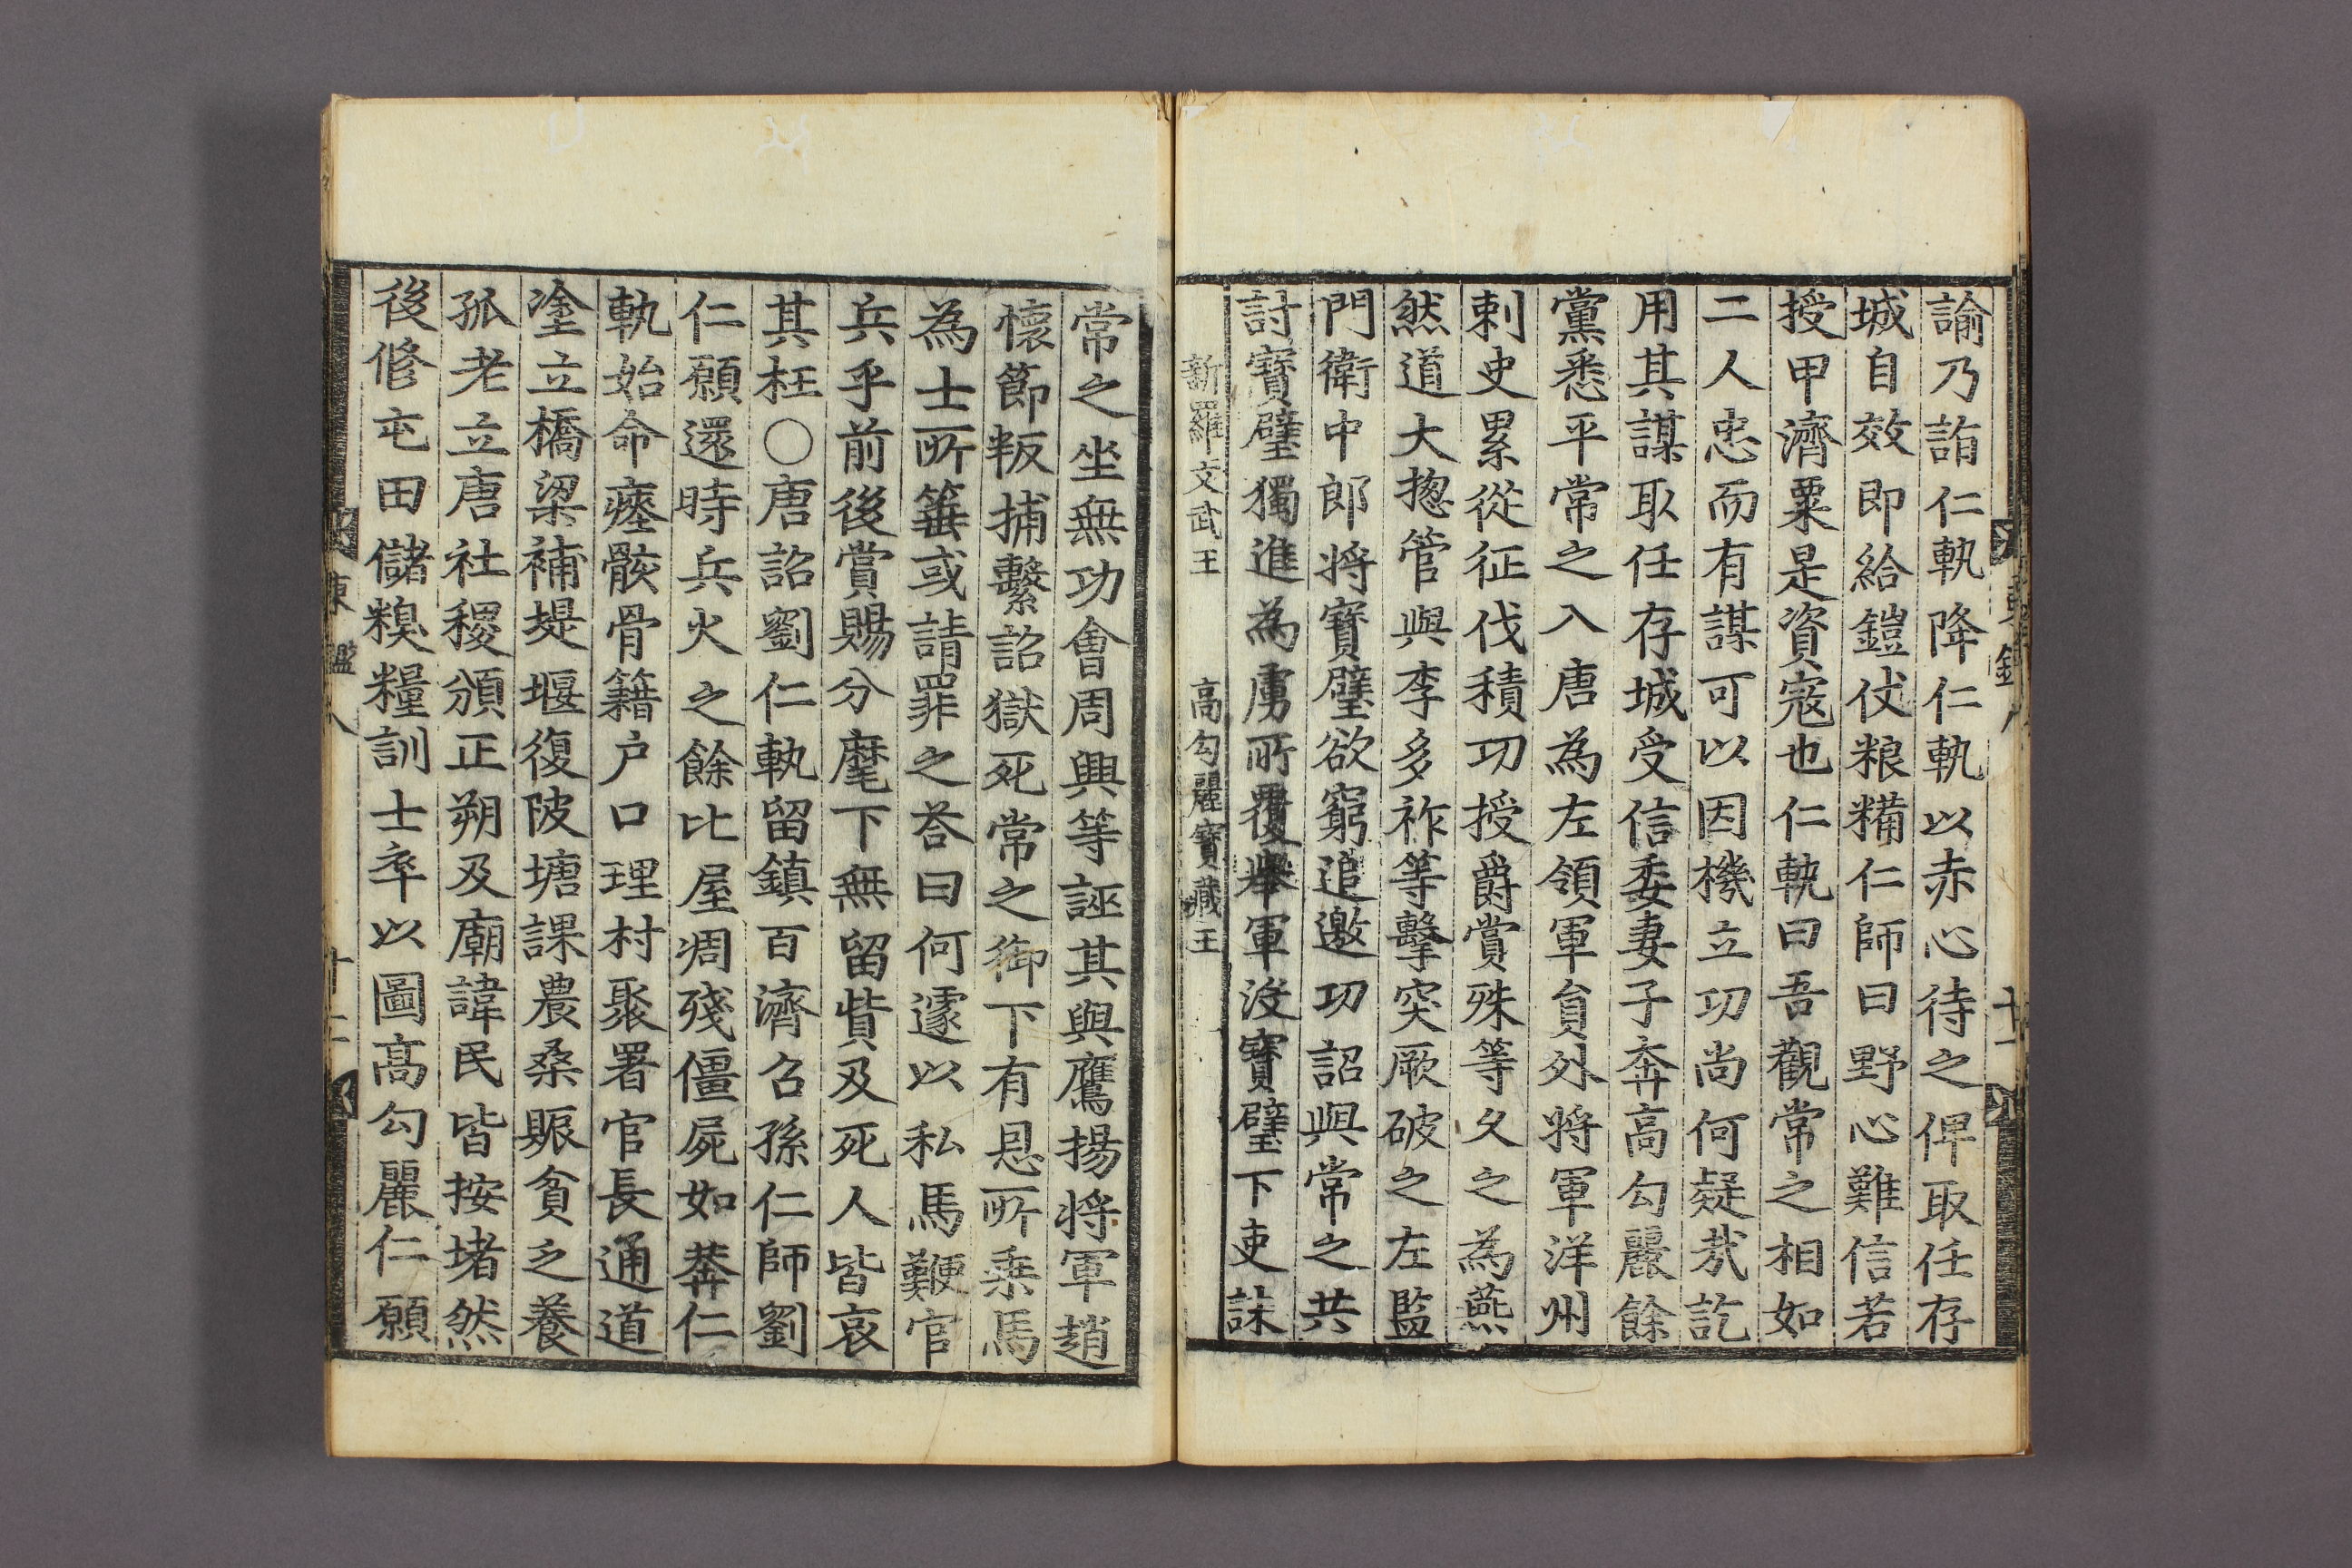 諭乃詣仁軌降仁軌以赤心待之俾取任存
城自效即給鎧仗粮糒仁師曰野心難信若
授甲濟粟是資寇也仁軌曰吾觀常之相如
二人忠而有謀可以因機立功尚何疑㦲訖
用其謀取任存城受信委妻子奔高勾麗餘
黨悉平常之入唐為左領軍貟外將軍洋州
刺史累從征伐積功授爵賞殊等久之為燕
然道大揔管與李多祚等擊突厥破之左監
門衛中郎將寳璧欲窮追邀功詔與常之共
討寳璧獨進為虜所覆擧軍没寳璧下吏誅
新羅文武王 高勾麗寳藏王
常之坐無功會周興等誣其與鷹揚將軍趙
懷節叛捕繫詔獄死常之御下有恩所乗馬
為士所箠或請罪之荅曰何遽以私馬鞭官
兵乎前後賞賜分麾下無留貲及死人皆哀
其枉○唐詔劉仁軌留鎮百濟召孫仁師劉
仁願還時兵火之餘比屋凋殘僵屍如莽仁
軌始命瘞骸骨籍户口理村聚署官長通道
塗立橋梁補堤堰復陂塘課農桑賑貧乏養
孤老立唐社稷頒正朔及廟諱民皆按堵然
後修屯田儲糗糧訓士卒以圖高勾麗仁願
東鑑八
十二